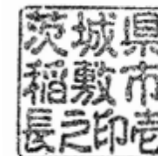 茨城県
稲敷市
長之印壱